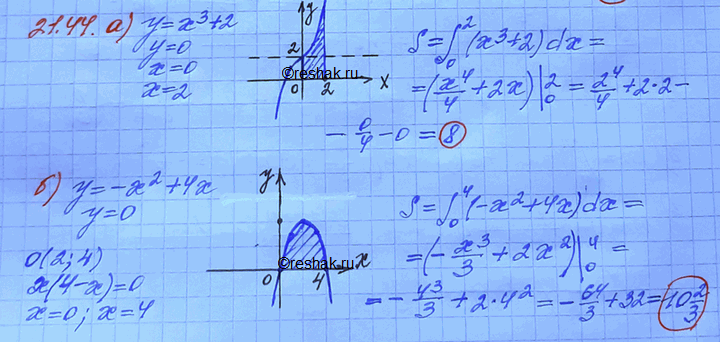 21.44. а) y=x³+2
y=0
x=0
x=2
y
2
0 2 x
©reshak.ru
S=∫₀²(x³+2)dx=
=(x⁴/4+2x)|₀²=2⁴/4+2·2-
-0/4-0=8
б) y=-x²+4x
y=0
O(2;4)
x(4-x)=0
x=0; x=4
y
0 4 x
©reshak.ru
S=∫₀⁴(-x²+4x)dx=
=(-x³/3+2x²)|₀⁴=
=-4³/3+2·4²=-64/3+32=10 2/3